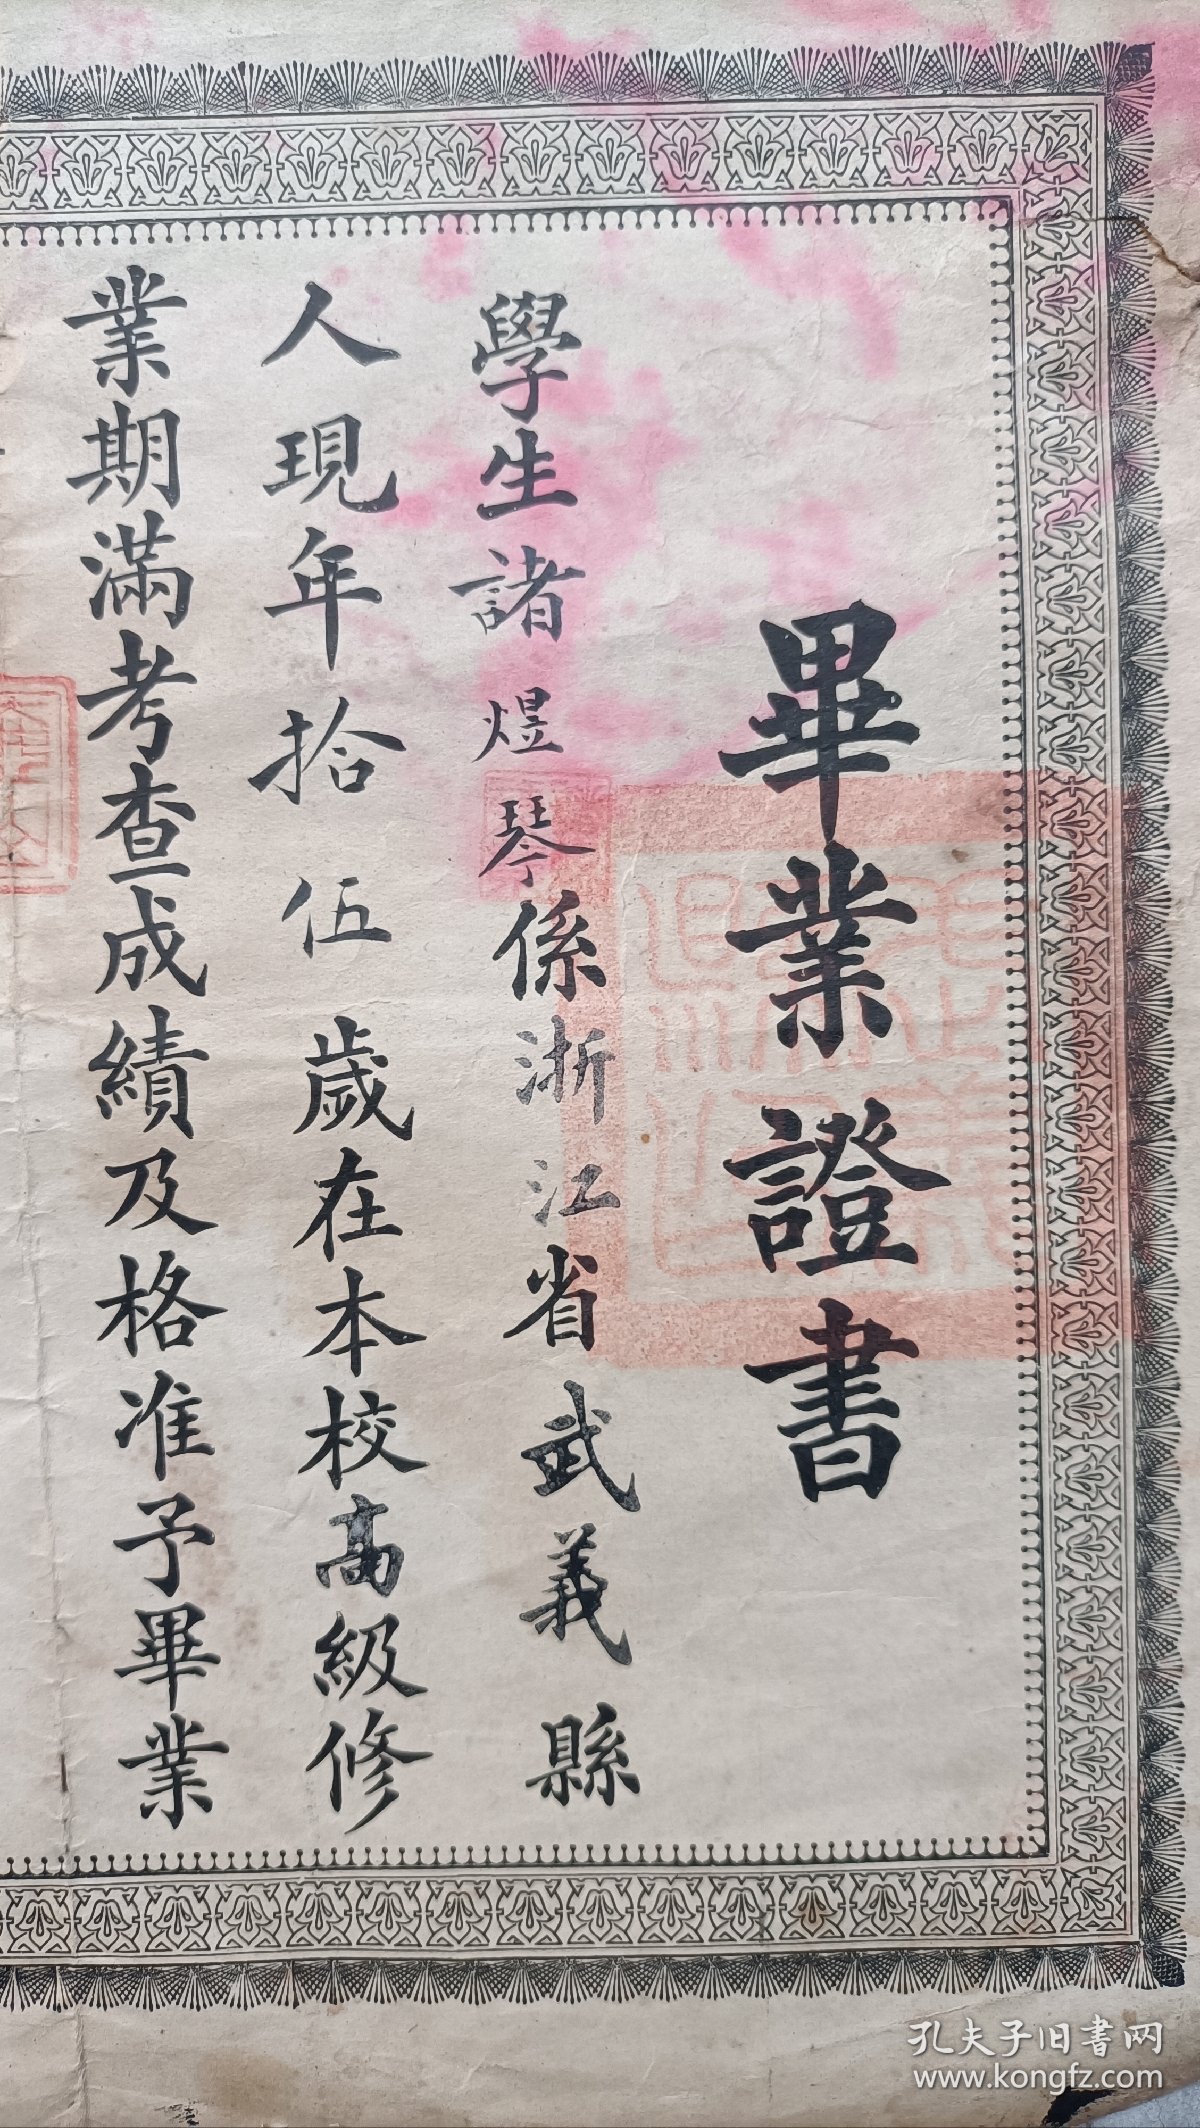 畢業證書
學生諸煜琴係浙江省武義縣
人現年拾伍歲在本校高級修
業期滿考查成績及格准予畢業
孔夫子旧書网
www.kongfz.com